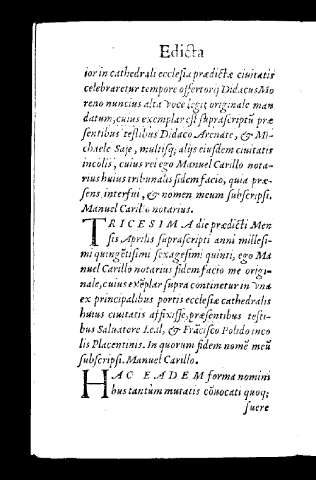 Edicta
ior in cathedrali ecclesia prædictæ ciuitatis
celebraretur tempore offertorij Didacus Mo
reno nuncius alta voce legit originale man
datum, cuius exemplar est suprascriptũ præ
sentibus testibus Didaco Arenate, & Mi-
chaele Saje, multisq; alijs eiusdem ciuitatis
incolis, cuius rei ego Manuel Carillo nota-
rius huius tribunalis fidem facio, quia præ-
sens interfui, & nomen meum subscripsi,
Manuel Carillo notarius.
TRICESIMA die prædicti Men
sis Aprilis suprascripti anni millesi-
mi quingẽtisimi sexagesimi quinti, ego Ma
nuel Carillo notarius fidem facio me origi-
nale, cuius exẽplar supra continetur in vna
ex principalibus portis ecclesiæ cathedralis
huius ciuitatis affixisse, præsentibus testi-
bus Saluatore Leal, & Frãcisco Polido inco
lis Placentinis. In quorum fidem nomẽ meũ
subscripsi. Manuel Carillo.
HAC EADEM forma nomini
bus tantùm mutatis cõuocati quoq;
fuere